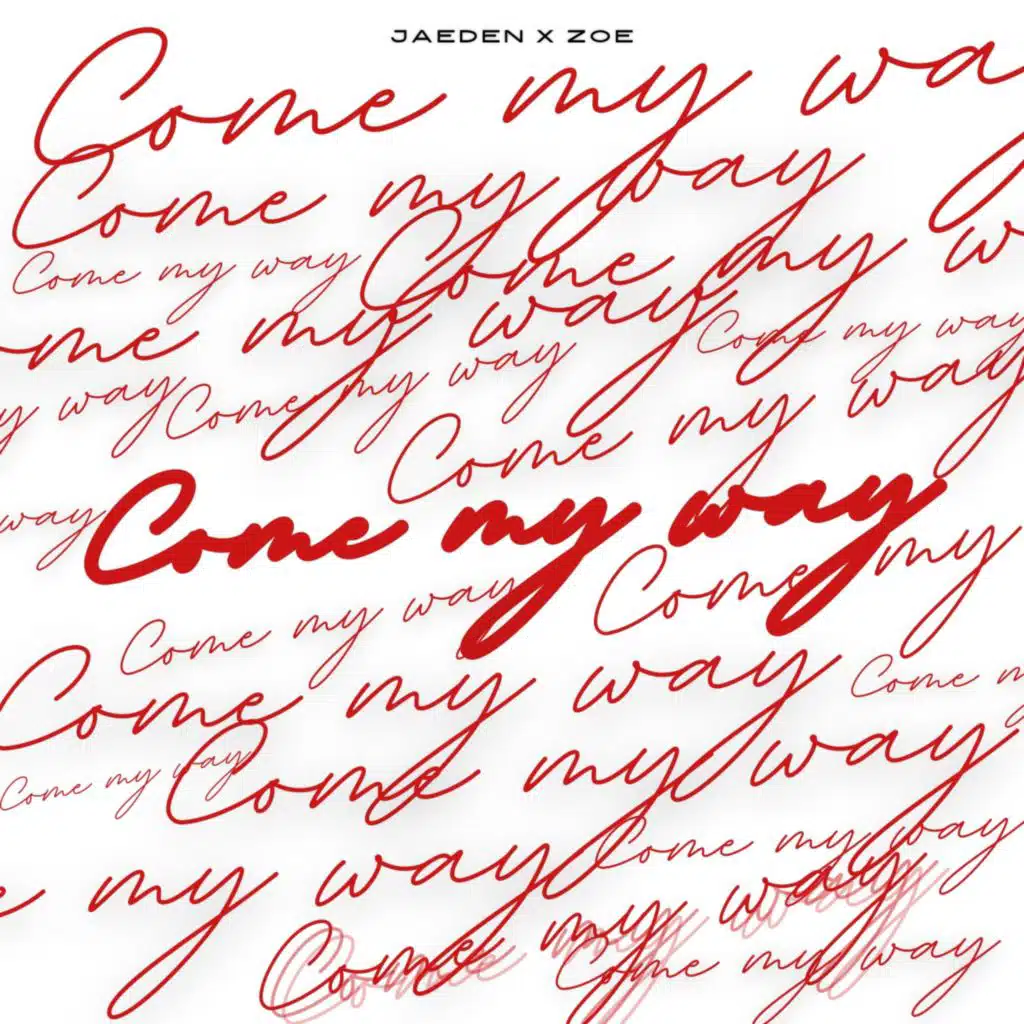 JAEDEN X ZOE
Come my wa
Come my way
Come my way
Come my w
ome my way
Come my way
y way
Come my way
Come my way
way
Come my way
Come my
Come my way
Come my way
Come m
Come my way
Come my way
Come my way
e my way
Come my way
Come my way